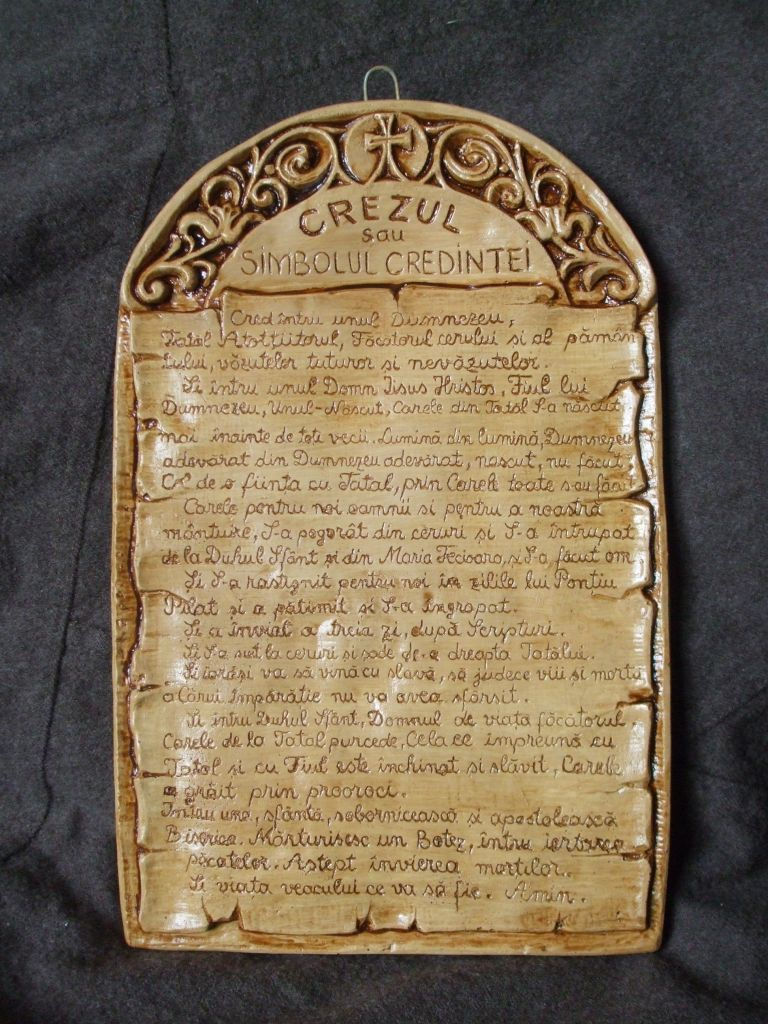 CREZUL
sau
SIMBOLUL CREDINTEI
Cred întru unul Dumnezeu,
Tatăl Atotţiitorul, Făcătorul cerului si al pămân
tului, văzutelor tuturor si nevăzutelor.
Si întru unul Domn Iisus Hristos, Fiul lui
Dumnezeu, Unul-Născut, Carele din Tatăl S-a născut
mai înainte de toti vecii. Lumină din lumină, Dumnezeu
adevărat din Dumnezeu adevărat, născut, nu făcut,
Cel de o fiinta cu Tatal, prin Carele toate s-au făcut
Carele pentru noi oamnii si pentru a noastră
mântuire, S-a pogorât din ceruri si S-a întrupat
de la Duhul Sfânt si din Maria Fecioara, si S-a făcut om
Si S-a rastignit pentru noi în zilile lui Pontiu
Pilat si a pătimit si S-a îngropat.
Si a înviat a treia zi, după Scripturi.
Si S-a suit la ceruri si sade de-a dreapta Tatălui.
Si iarăsi va să vină cu slavă, să judece viii si mortii
a Cărui Împărătie nu va avea sfârsit.
Si întru Duhul Sfânt, Domnul de viata făcătorul.
Carele de la Tatal purcede, Cela ce împreună cu
Tatăl si cu Fiul este închinat si slăvit, Carele
a grăit prin prooroci.
Intru una, sfântă, sobornicească si apostolească
Biserica. Mărturisesc un Botez, întru iertarea
păcatelor. Astept învierea mortilor.
Si viata veacului ce va să fie. Amin.